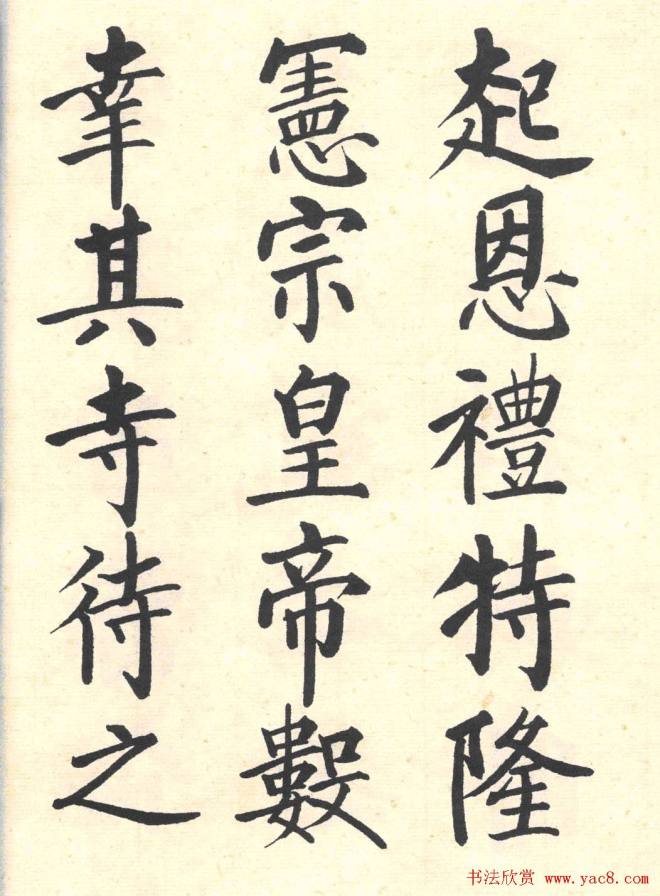 起恩禮特隆
憲宗皇帝數
幸其寺待之
书法欣赏 www.yac8.com